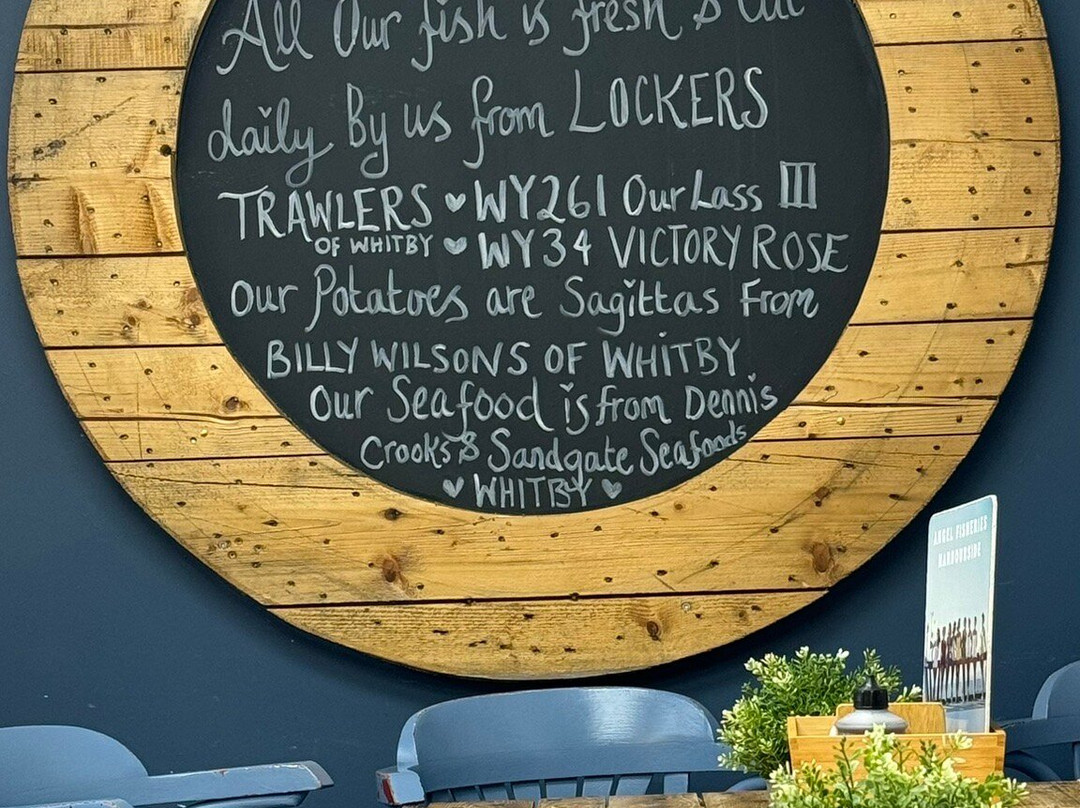 All Our fish is fresh & Cut
daily By us from LOCKERS
TRAWLERS ♥ WY261 Our Lass III
OF WHITBY ♥ WY34 VICTORY ROSE
Our Potatoes are Sagittas From
BILLY WILSONS OF WHITBY
Our Seafood is from Dennis
Crooks & Sandgate Seafoods
♥ WHITBY ♥
ANGEL FISHERIES
HARBOURSIDE